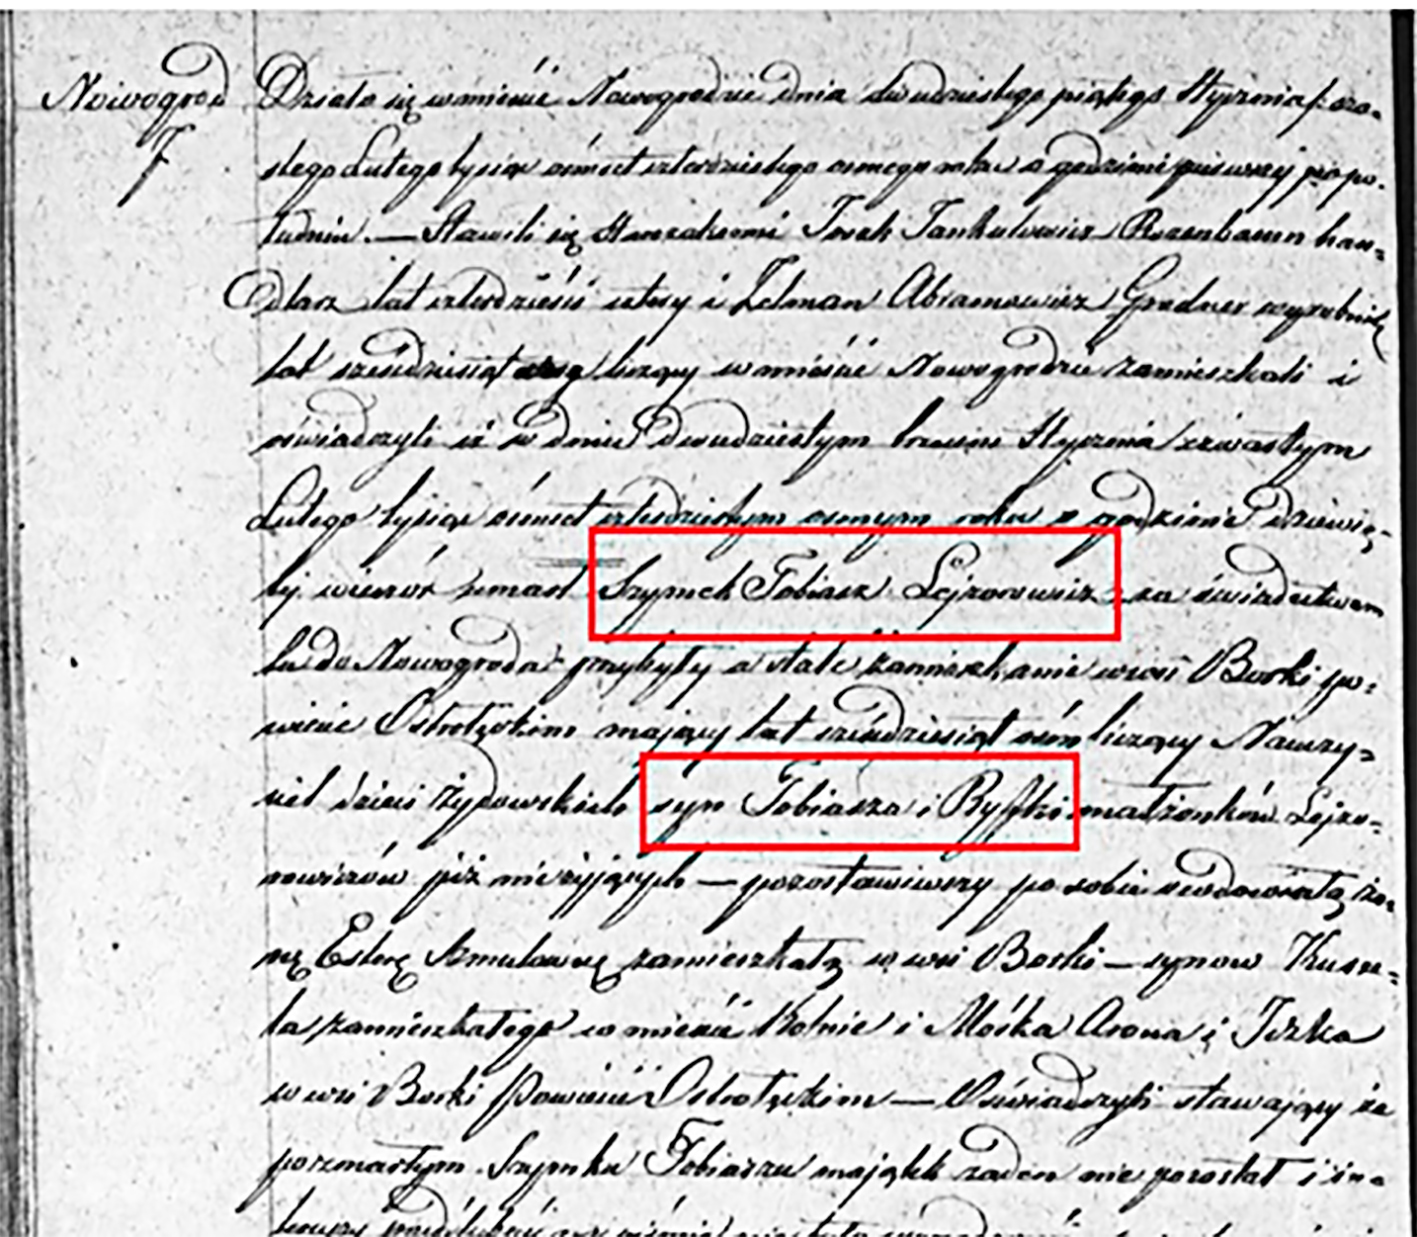 Nowogrod
7
Działo się w mieście Nowogrodzie dnia dwudziestego piątego Stycznia/szo-
stego Lutego tysiąc ośmset czterdziestego osmego roku o godzinie pierwszej po po-
łudniu. — Stawili się Starozakonni Josek Jankielowicz Rozenbaum han-
dlarz lat czterdzieści cztery i Zelman Abramowicz Gredner wyrobnik
lat sześćdziesiąt liczący w mieście Nowogrodzie zamieszkali i
oświadczyli iż w dniu dwudziestym trzecim Stycznia/czwartym
Lutego tysiąc ośmset czterdziestym osmym roku o godzinie dziewią-
tej wieczór umarł Szymek Tobiasz Lejzorowicz za świadectwem
tu do Nowogroda przybyły a stałe zamieszkanie w wsi Borki po-
wiecie Ostrołęckim mający lat sześćdziesiąt osm liczący Nauczy-
ciel dzieci żydowskich syn Tobiasza i Ryfki małżonków Lejzo-
rowiczów już nieżyjących — pozostawiwszy po sobie owdowiałą żo-
nę Esterę Szmulownę zamieszkałą w wsi Borki — synow
zamieszkałego w mieście Kolnie i Mośka Arona i Iczka
w wsi Borki Powiecie Ostrołęckim — Oświadczyli stawający że
po zmarłym Szymku Tobiaszu majątek żaden nie pozostał i